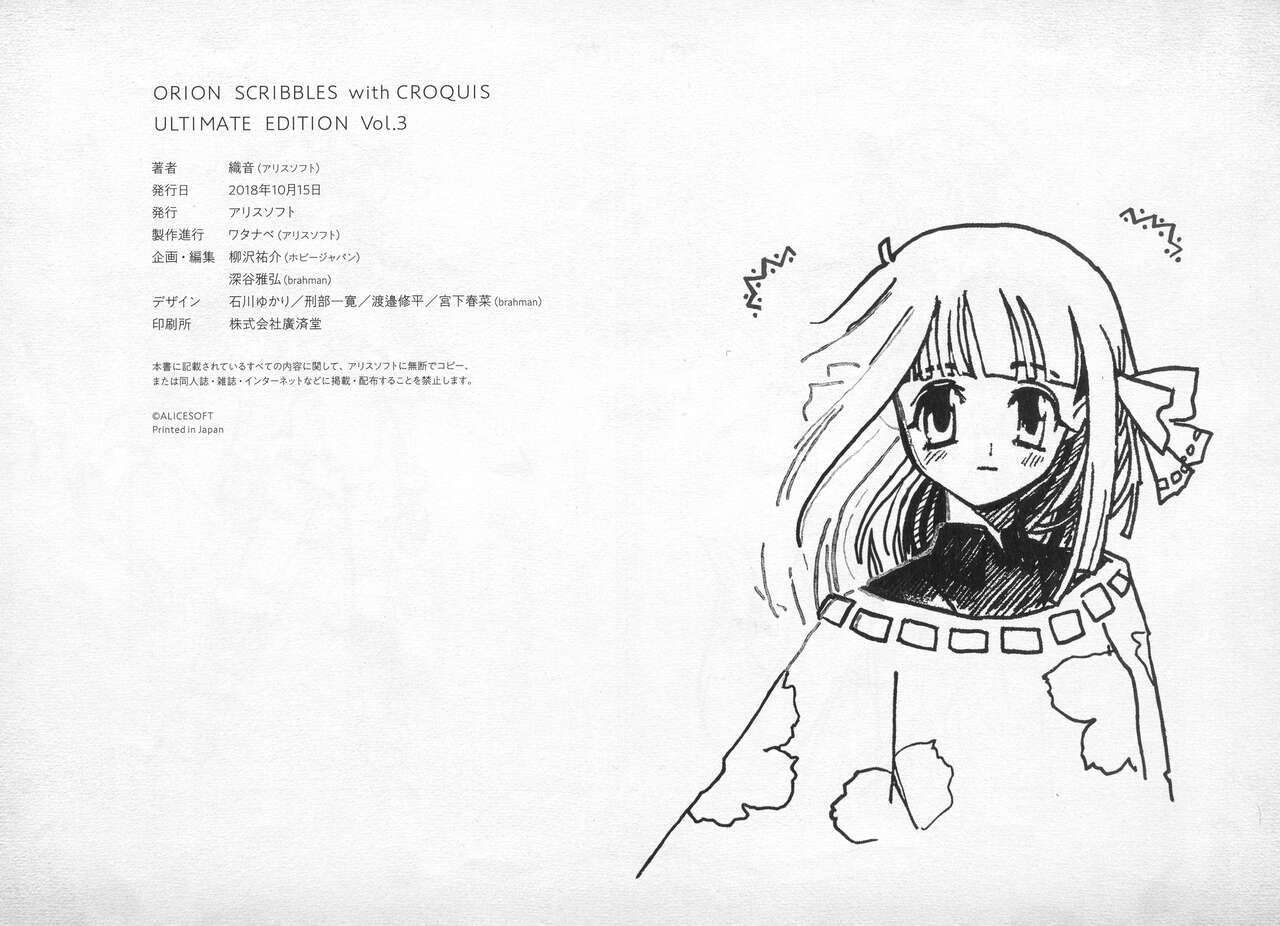 ORION SCRIBBLES with CROQUIS
ULTIMATE EDITION Vol.3
著者 織音(アリスソフト)
発行日 2018年10月15日
発行 アリスソフト
製作進行 ワタナベ(アリスソフト)
企画・編集 柳沢祐介(ホビージャパン)
深谷雅弘(brahman)
デザイン 石川ゆかり/刑部一寛/渡邉修平/宮下春菜(brahman)
印刷所 株式会社廣済堂
本書に記載されているすべての内容に関して、アリスソフトに無断でコピー、
または同人誌・雑誌・インターネットなどに掲載・配布することを禁止します。
©ALICESOFT
Printed in Japan